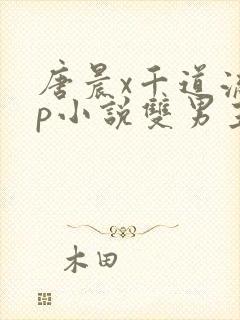 唐晨x千道流
p小說雙男主
木田